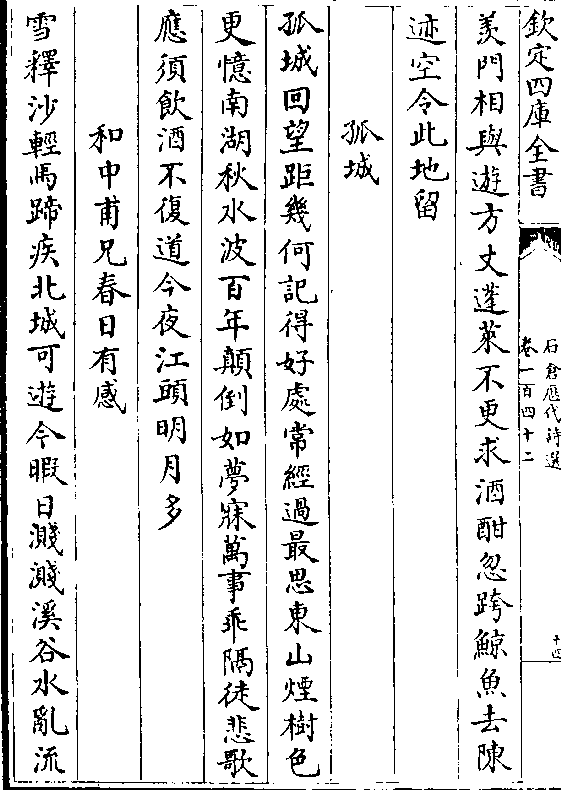 欽定四庫全書
石倉歷代詩選
卷一百四十二
十四
羡門相與遊方丈蓬萊不更求酒酣忽跨鯨魚去陳
迹空令此地留
孤城
孤城回望距幾何記得好處常經過最思東山煙樹色
更憶南湖秋水波百年顛倒如夢寐萬事乖隔徒悲歌
應須飲酒不復道今夜江頭明月多
和中甫兄春日有感
雪釋沙輕馬蹄疾北城可遊今暇日濺濺溪谷水亂流